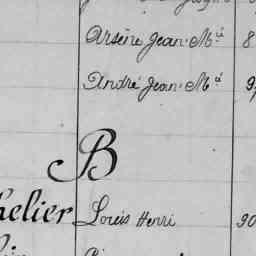 Arsène Jean Mie 8
André Jean Mie 9
B
helier Louis Henri 90